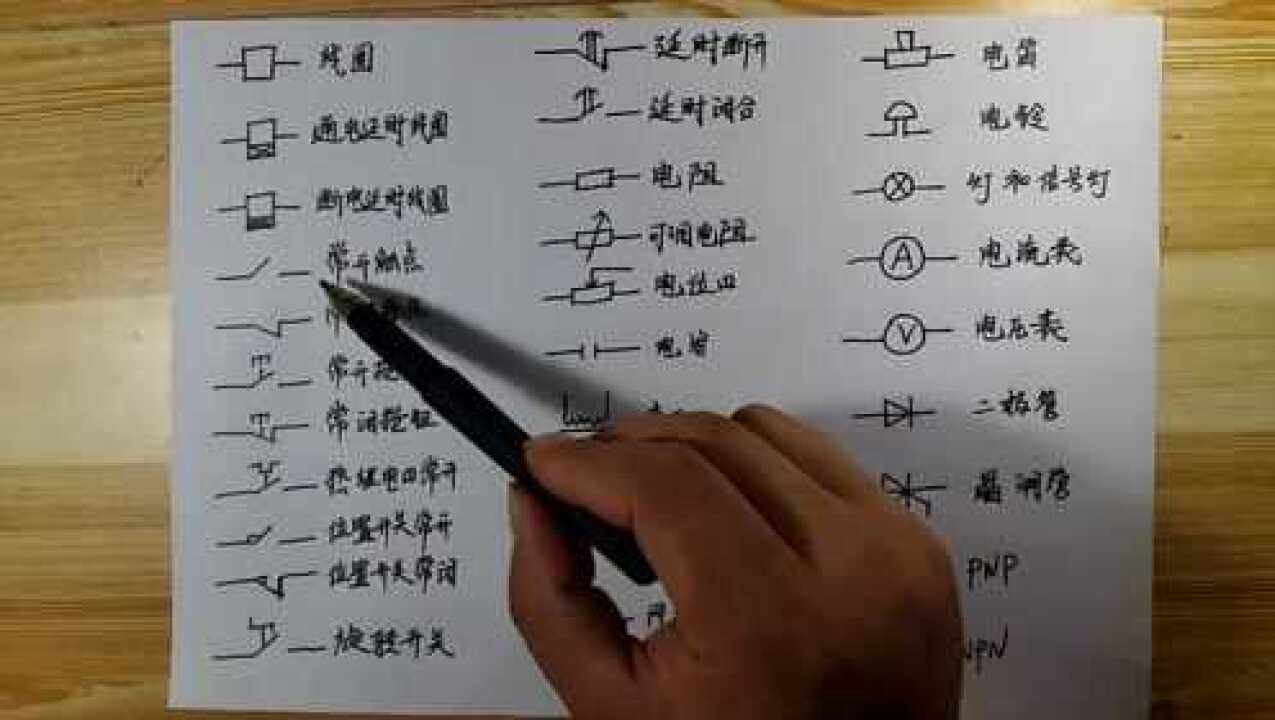 线圈
通电延时线圈
断电延时线圈
常开触点
常开按
常闭按钮
热继电口常开
位置开关常开
位置开关常闭
旋转开关
延时断开
延时闭合
电阻
可调电阻
电位口
电容
电笛
电铃
灯和信号灯
A 电流表
V 电压表
二极管
晶闸管
PNP
NPN